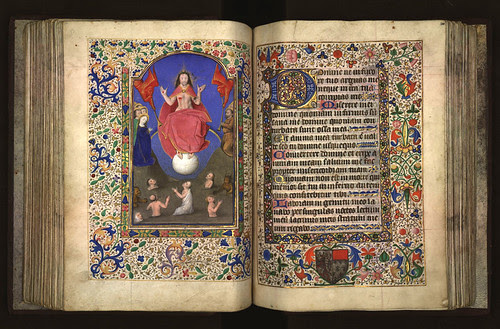 Domine ne in furore
tuo arguas me
neque in ira tua
corripias me
Miserere mei
domine quoniam infirmus sum
sana me domine quoniam con
turbata sunt ossa mea
Et anima mea turbata est val
de sed tu domine usquequo
Convertere domine et eripe a
nimam meam salvum me fac
propter misericordiam tuam
Quoniam non est in morte qui
memor sit tui in inferno autem
quis confitebitur tibi
Laboravi in gemitu meo la
vabo per singulas noctes lectum
meum lacrimis meis stratum me
um rigabo